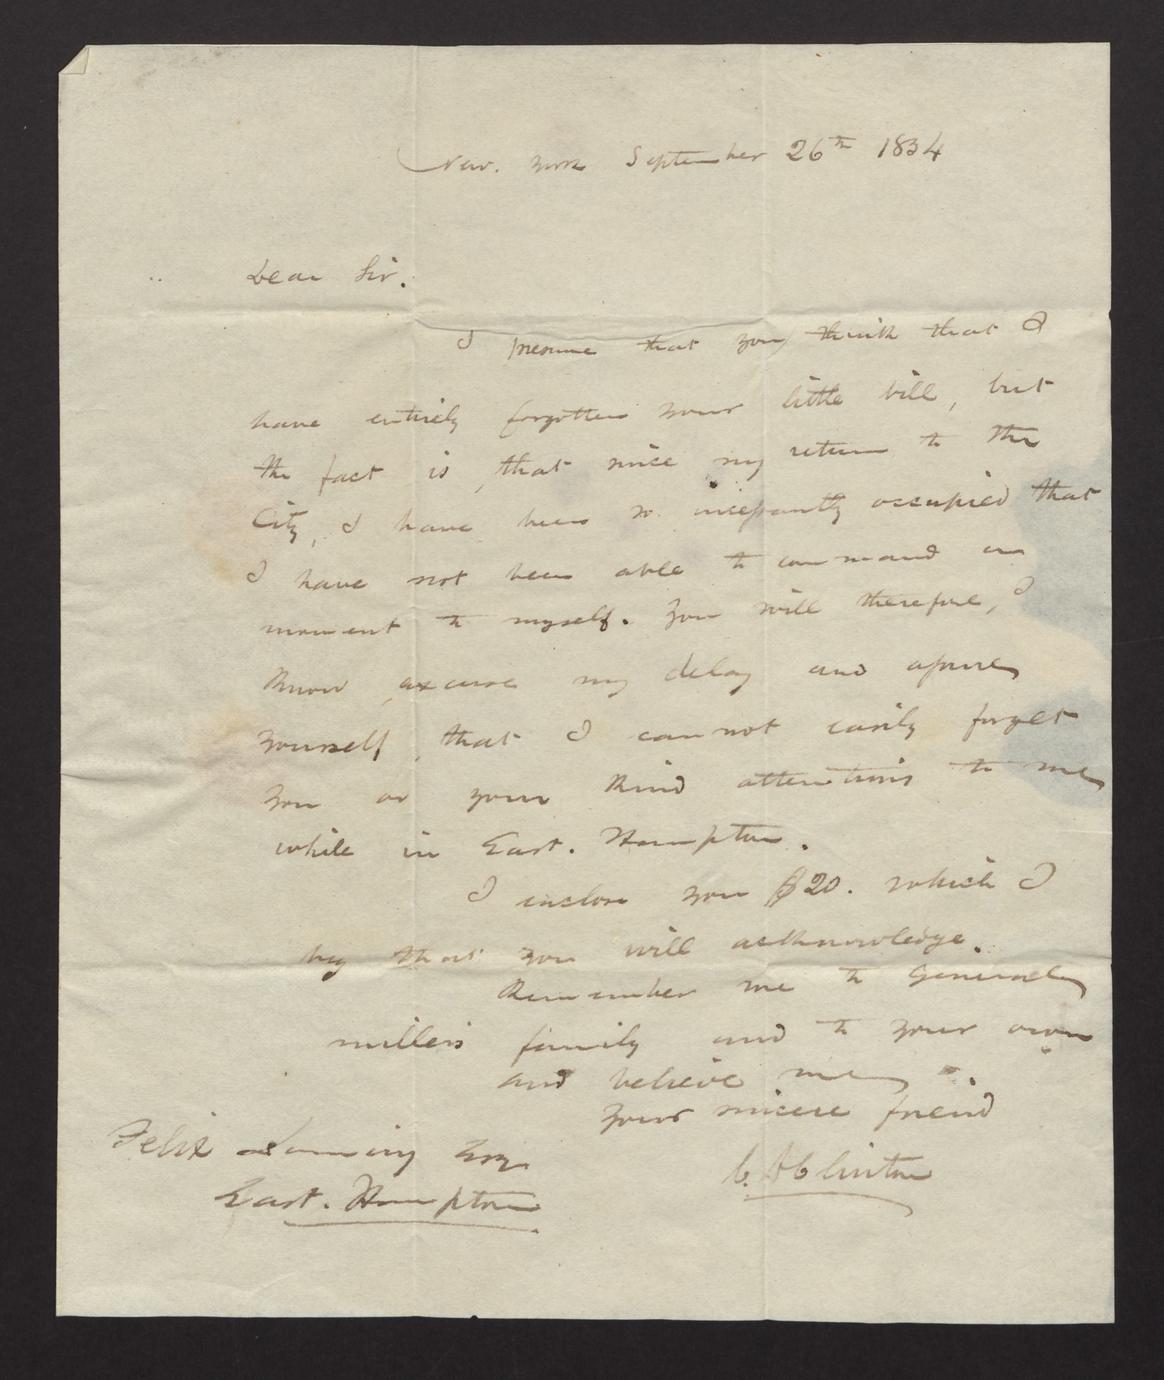 New. York September 26th 1834
Dear Sir.
I presume that you think that I
have entirely forgotten your little bill, but
the fact is, that since my return to the
City, I have been so incessantly occupied that
I have not been able to command a
moment to myself. You will therefore, I
know excuse my delay and assure
yourself, that I cannot easily forget
you or your kind attentions to me
while in East. Hampton.
I enclose you $20. which I
beg that you will acknowledge.
Remember me to General
Miller's family and to your own
and believe me
your sincere friend
Clinton
Felix Esq
East. Hampton